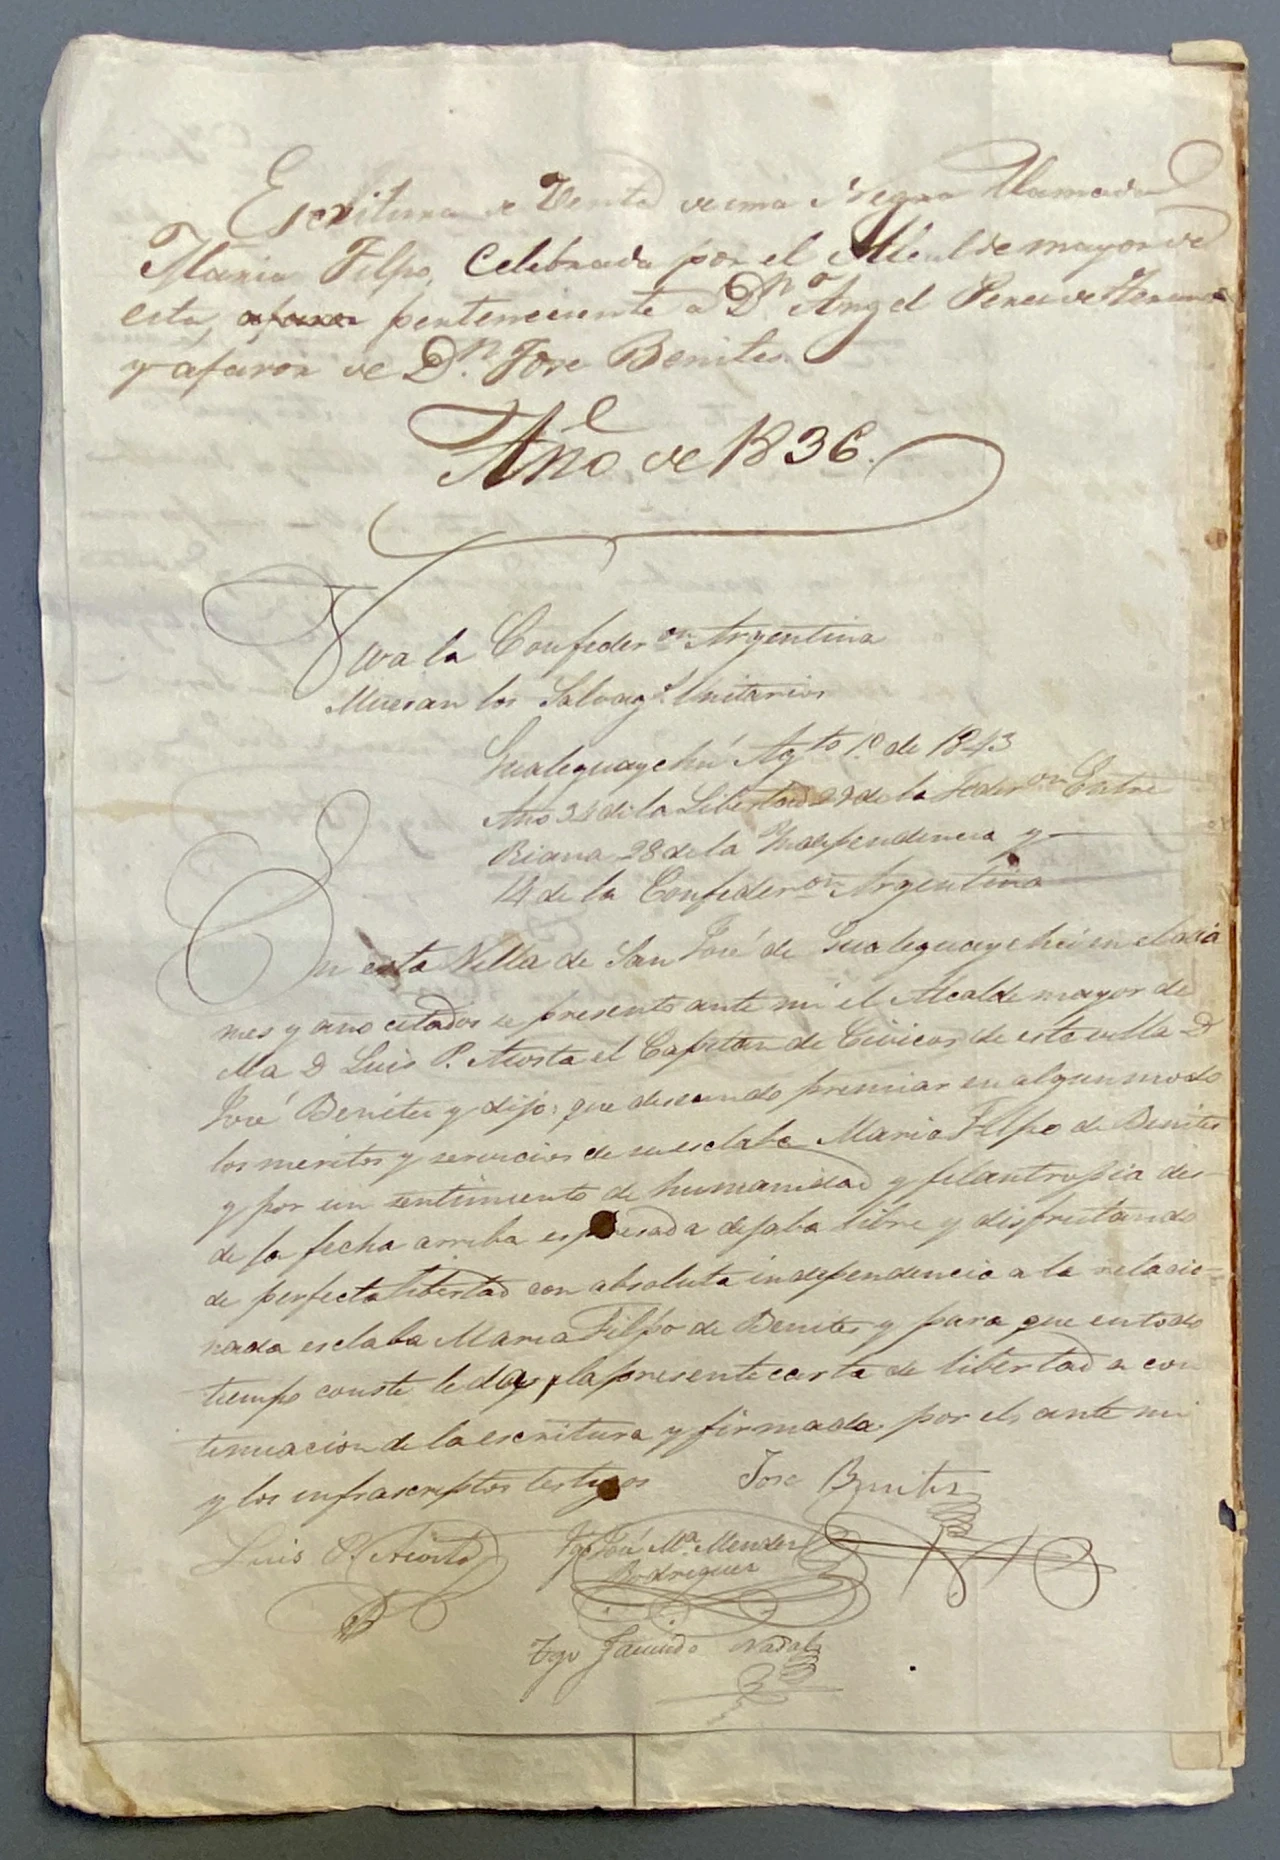 Escritura de Venta de una Negra llamada
Maria Filpo, Celebrada por el Alcalde mayor de
esta, afavor perteneciente a Dn. Angel Perez de
y afavor de Dn. Jose Benites.
Año de 1836.
Viva la Confederon. Argentina
Mueran los Salvags. Unitarios
Gualeguaychú Agto. 1o. de 1843
Año 34 de la Libertad 29 de la Federon. Entre
Riana 28 de la Independencia y
14 de la Confederon. Argentina
En esta Villa de San José de Gualeguaychú en el dia
mes y año citados se presento ante mi el Alcalde mayor de
ella D Luis P. Acosta el Capitan de Civicos de esta villa D
José Benites y dijo; que deseando premiar en algun modo
los meritos y servicios de su esclaba Maria Filpo de Benites
y por un sentimiento de humanidad y filantropia des-
de la fecha arriba espresada dejaba libre y disfrutando
de perfecta libertad con absoluta independencia a la relacio-
nada esclaba Maria Filpo de Benites y para que en todo
tiempo conste le da la presente carta de libertad a con
tinuacion de la escritura y firmada por el, ante mi
y los infrascriptos testigos Jose Benites
Luis P. Acosta Tgo José Ma. Mendez
Rodriguez
Tgo Jacinto Nadal